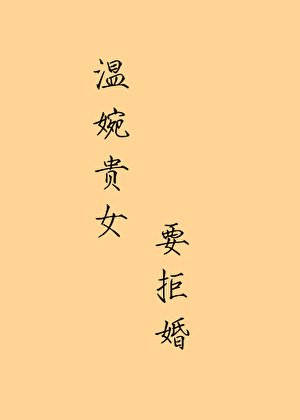 温婉贵女
要拒婚